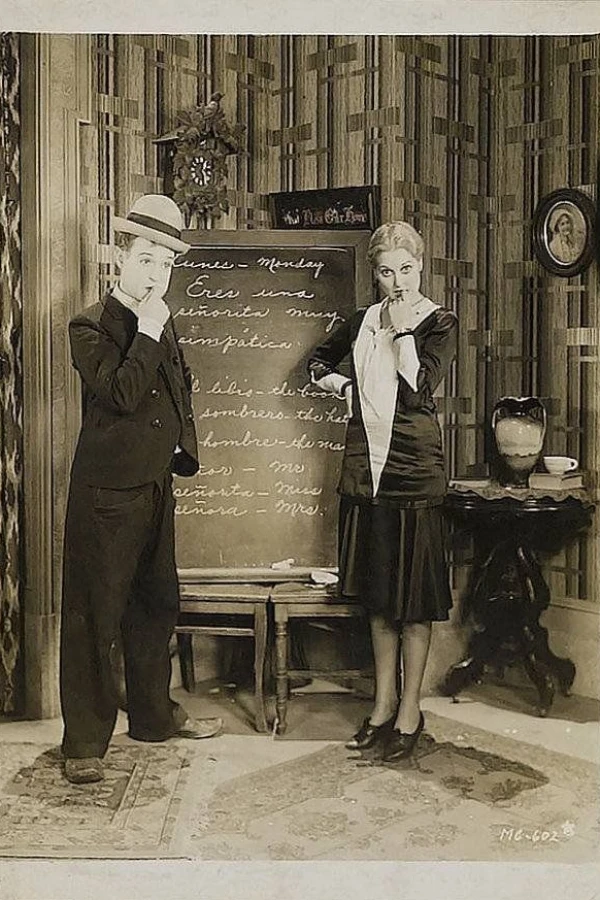 Our Home
Lunes - Monday
Eres una
señorita muy
simpática.
libis - the book
sombrero - the hat
hombre - the ma
- Mr.
señorita - Miss
señora - Mrs.
MG-602